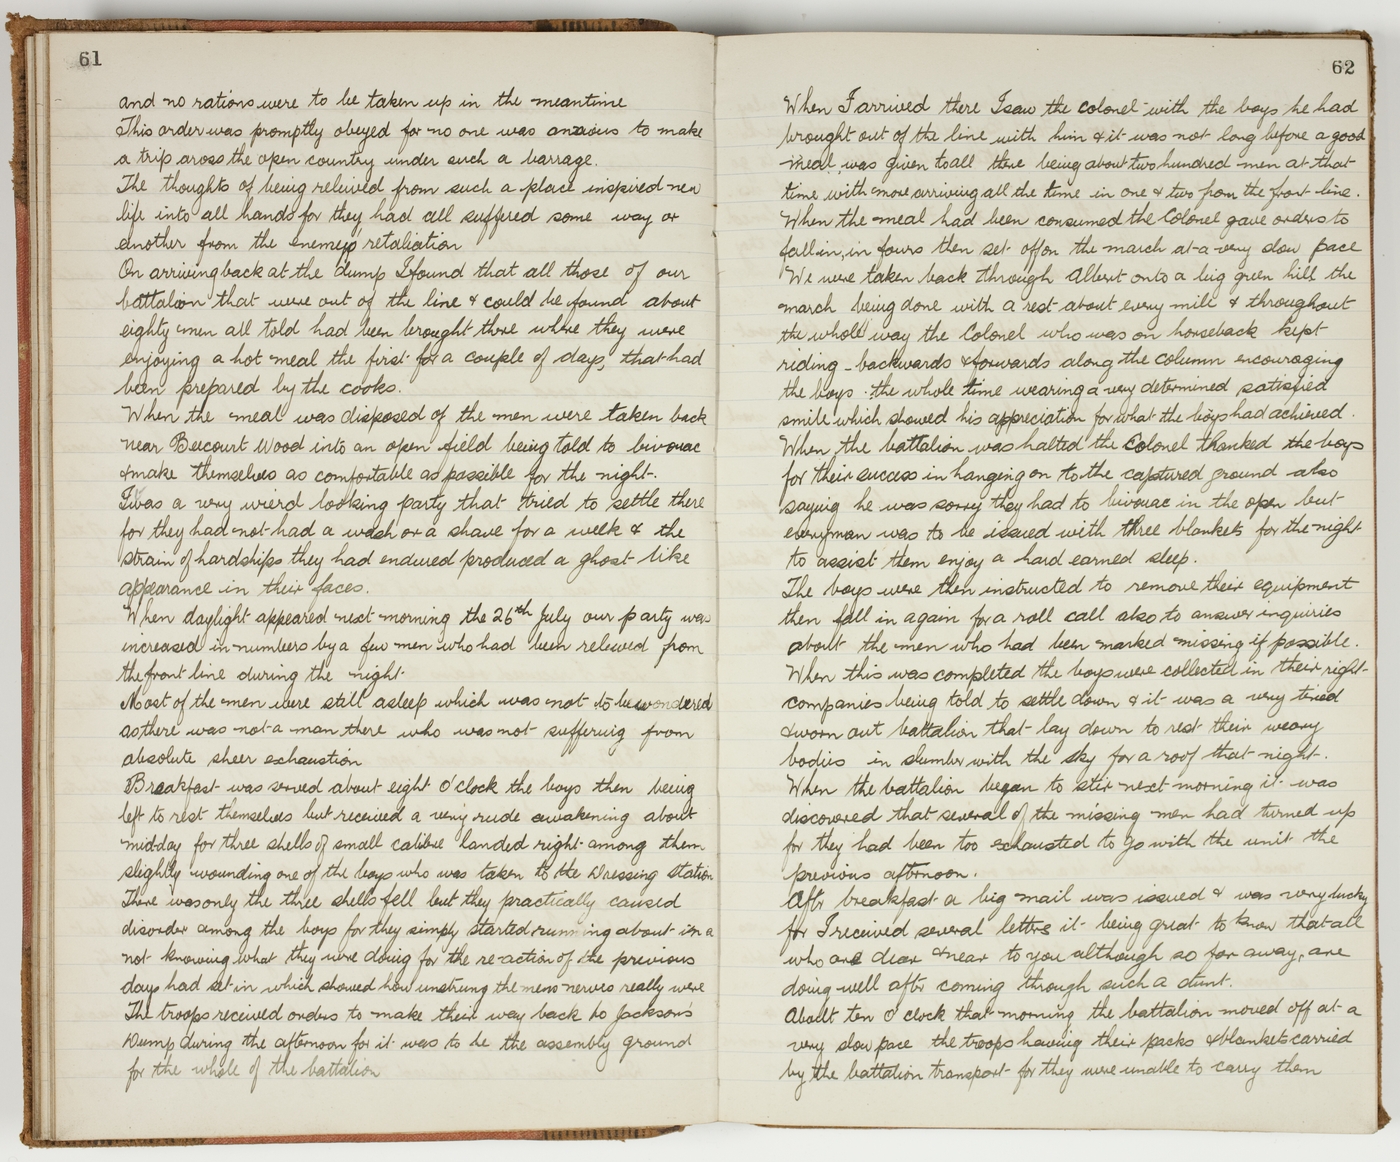 61
and no rations were to be taken up in the meantime
This order was promptly obeyed for no one was anxious to make
a trip aross the open country under such a barrage.
The thoughts of being releived from such a place inspired new
life into all hands for they had all suffered some way or
another from the enemys' retaliation
On arriving back at the dump I found that all those of our
battalion that were out of the line & could be found about
eighty men all told had been brought there where they were
enjoying a hot meal the first for a couple of days, that had
been prepared by the cooks.
When the meal was disposed of the men were taken back
near Becourt Wood into an open field being told to bivouac
& make themselves as comfortable as possible for the night.
I was a very wierd looking party that tried to settle there
for they had not had a wash or a shave for a week & the
strain of hardships they had endured produced a ghost like
appearance in their faces.
When daylight appeared next morning the 26th July our party was
increased in numbers by a few men who had been releived from
the front line during the night.
Most of the men were still asleep which was not to be wondered
as there was not a man there who was not suffering from
absolute sheer exhaustion
Breakfast was served about eight o'clock the boys then being
left to rest themselves but received a very rude awakening about
midday for three shells of small calibre landed right among them
slightly wounding one of the boys who was taken to the Dressing Station
There was only the three shells fell but they practically caused
disorder among the boys for they simply started running about in a
not knowing what they were doing for the re-action of the previous
days had set in which showed how unstrung the mens nerves really were
The troops received orders to make their way back to Jackson's
Dump during the afternoon for it was to be the assembly ground
for the whole of the battalion
62
When I arrived there I saw the colonel with the boys he had
brought out of the line with him & it was not long before a good
meal was given to all there being about two hundred men at that
time with more arriving all the time in one & two from the front line.
When the meal had been consumed the Colonel gave orders to
fall in, in fours then set off on the march at a very slow pace
We were taken back through Albert onto a big green hill the
march being done with a rest about every mile & throughout
the whole way the Colonel who was on horseback kept
riding backwards & forwards along the column encouraging
the boys the whole time wearing a very determined satisfied
smile which showed his appreciation for what the boys had achieved.
When the battalion was halted the Colonel thanked the boys
for their success in hanging on to the captured ground also
saying he was sorry they had to bivouac in the open but
everyman was to be issued with three blankets for the night
to assist them enjoy a hard earned sleep.
The boys were then instructed to remove their equipment
then fall in again for a roll call also to answer inquiries
about the men who had been marked missing if possible.
When this was completed the boys were collected in their right
companies being told to settle down & it was a very tired
& worn out battalion that lay down to rest their weary
bodies in slumber with the sky for a roof that night.
When the battalion began to stir next morning it was
discovered that several of the missing men had turned up
for they had been too exhausted to go with the unit the
previous afternoon.
After breakfast a big mail was issued & was very lucky
for I received several letters it being great to know that all
who are dear & near to you although so far away, are
doing well after coming through such a stunt.
About ten o'clock that morning the battalion moved off at a
very slow pace the troops having their packs & blankets carried
by the battalion transport for they were unable to carry them